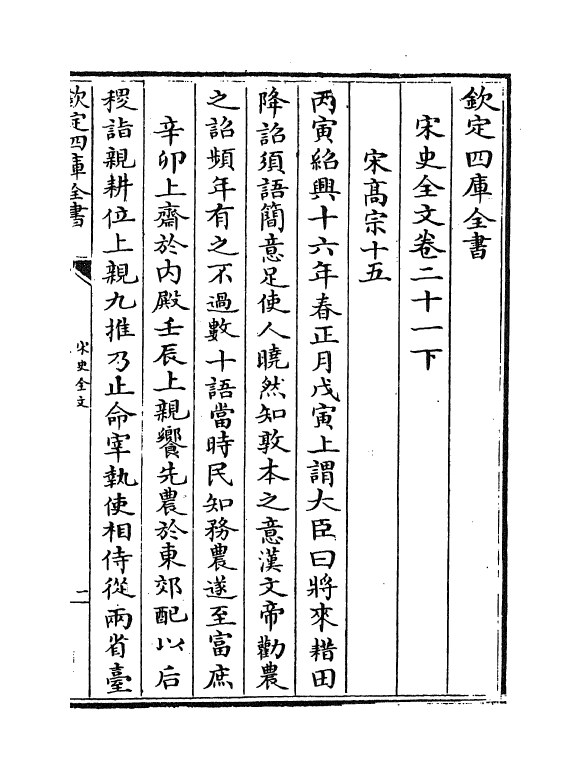 欽定四庫全書
宋史全文卷二十一下
宋髙宗十五
丙寅紹興十六年春正月戊寅上謂大臣曰將來耤田
降詔須語簡意足使人曉然知敦本之意漢文帝勸農
之詔頻年有之不過數十語當時民知務農遂至富庶
辛卯上齋於内殿壬辰上親饗先農於東郊配以后
稷詣親耕位上親九推乃止命宰執使相侍從兩省臺
欽定四庫全書
宋史全文